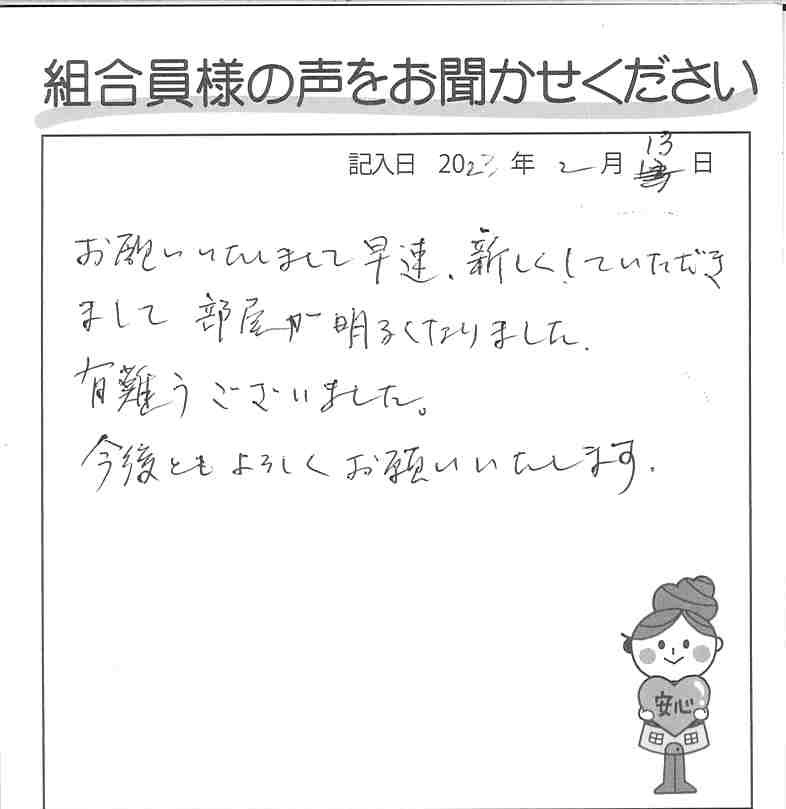 組合員様の声をお聞かせください
記入日 2023年 2月 13日
お願いいたしまして早速、新しくしていただき
まして 部屋が明るくなりました.
有難うございました。
今後ともよろしくお願いいたします.
安心